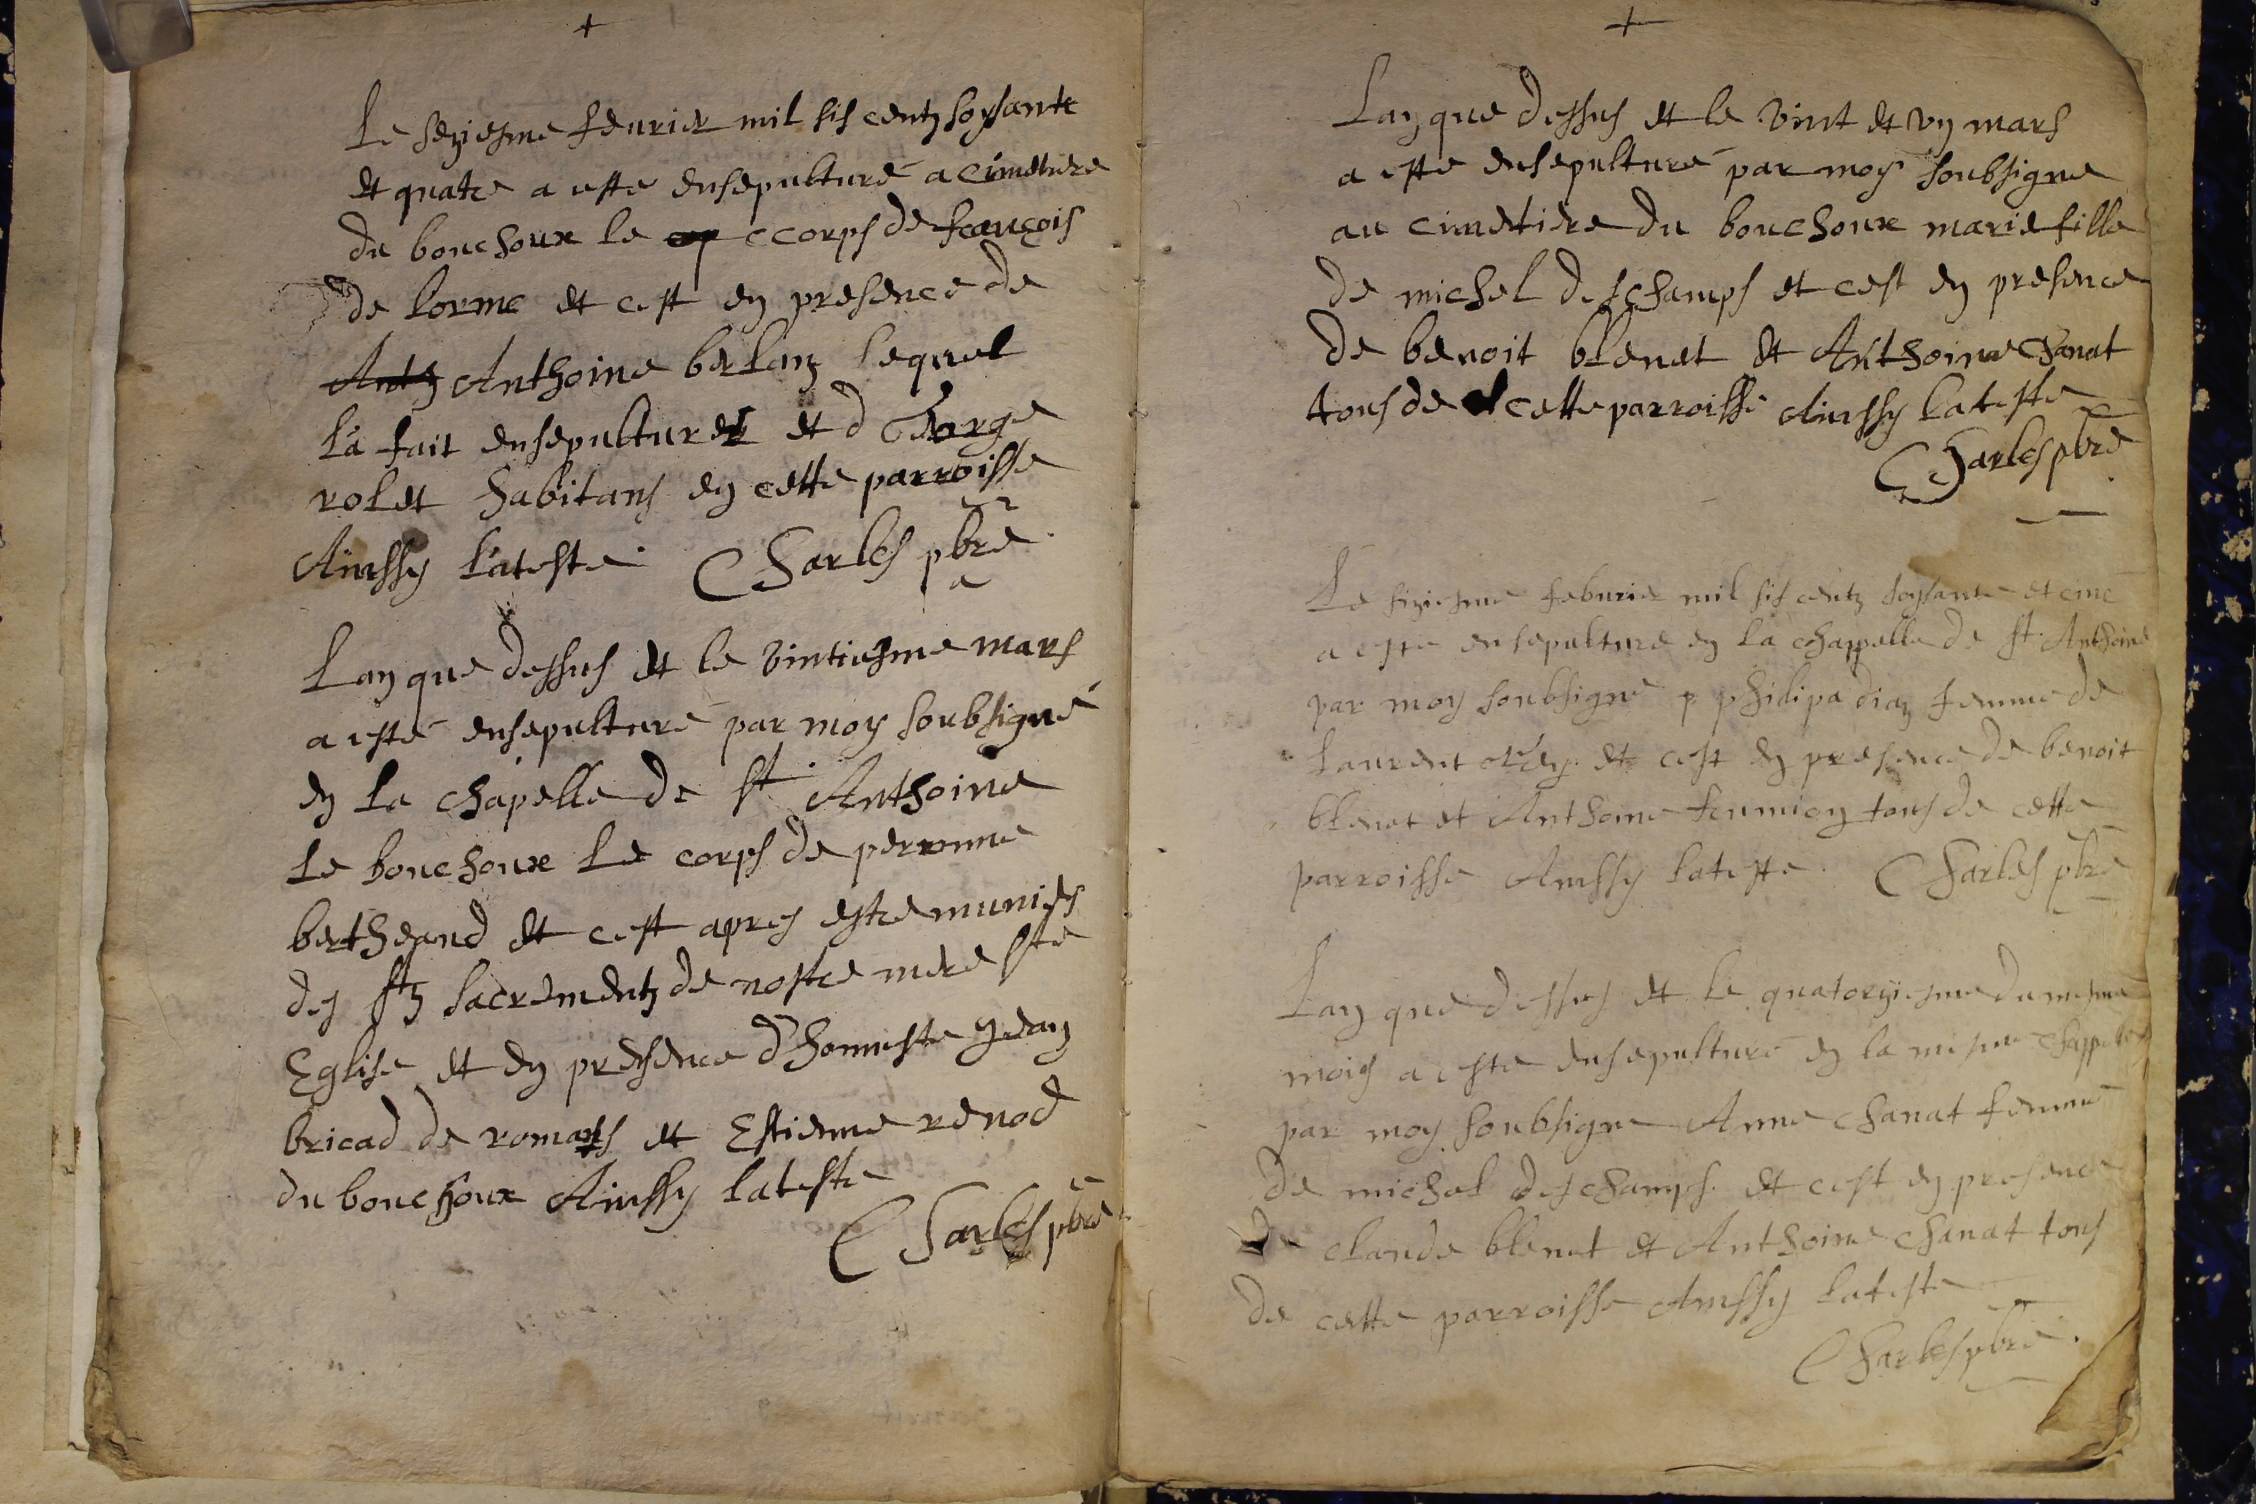 +
Le seziesme feurier mil sis centz soysante
et quatre a esté ensepulturé a cimetiere
du bouchoux le ccorps de francois
de lorme et cest en presence de
Antz Anthoine berlan lequel
l'a fait ensepulturer et d George
rolet habitans en cette parroisse
Ainssy l'ateste. Charles pbre
Lan que dessus et le vintiesme mars
a esté ensepulturé par moy soubsigné
en la chapelle de st. Anthoine
le bouchoux le corps de peronne
bertheand et cest apres estre munies
des stz sacrementz de nostre mere ste
Eglise et en presence d'honneste Jean
bricad de romans et Estienne renod
du bouchoux Ainssy lateste
Charles pbre
+
Lan que dessus et le vint et un mars
a esté ensepulturé par moy soubsigne
au cimetiere du bouchoux marie fille
de michel deschamps et cest en presence
de benoit blenet et Anthoine Chanat
tous de cette parroisse Ainssy lateste
Charles pbre
Le siziesme feburier mil sis centz soysante et cinc
a este ensepulture en la chappelle de st. Anthoine
par moy soubsigne p philipa femme de
Laurent et cest en presence de benoit
blenet et Anthoine tous de cette
parroisse Ainssy lateste. Charles pbre
Lan que dessus et le quatorziesme du mesme
mois a este ensepulturé en la mesme chappelle
par moy soubsigne Anne chanat femme
de michel deschamps. et cest en presence
de claude blenet et Anthoine chanat tous
de cette parroisse Ainssy lateste
Charles pbre.